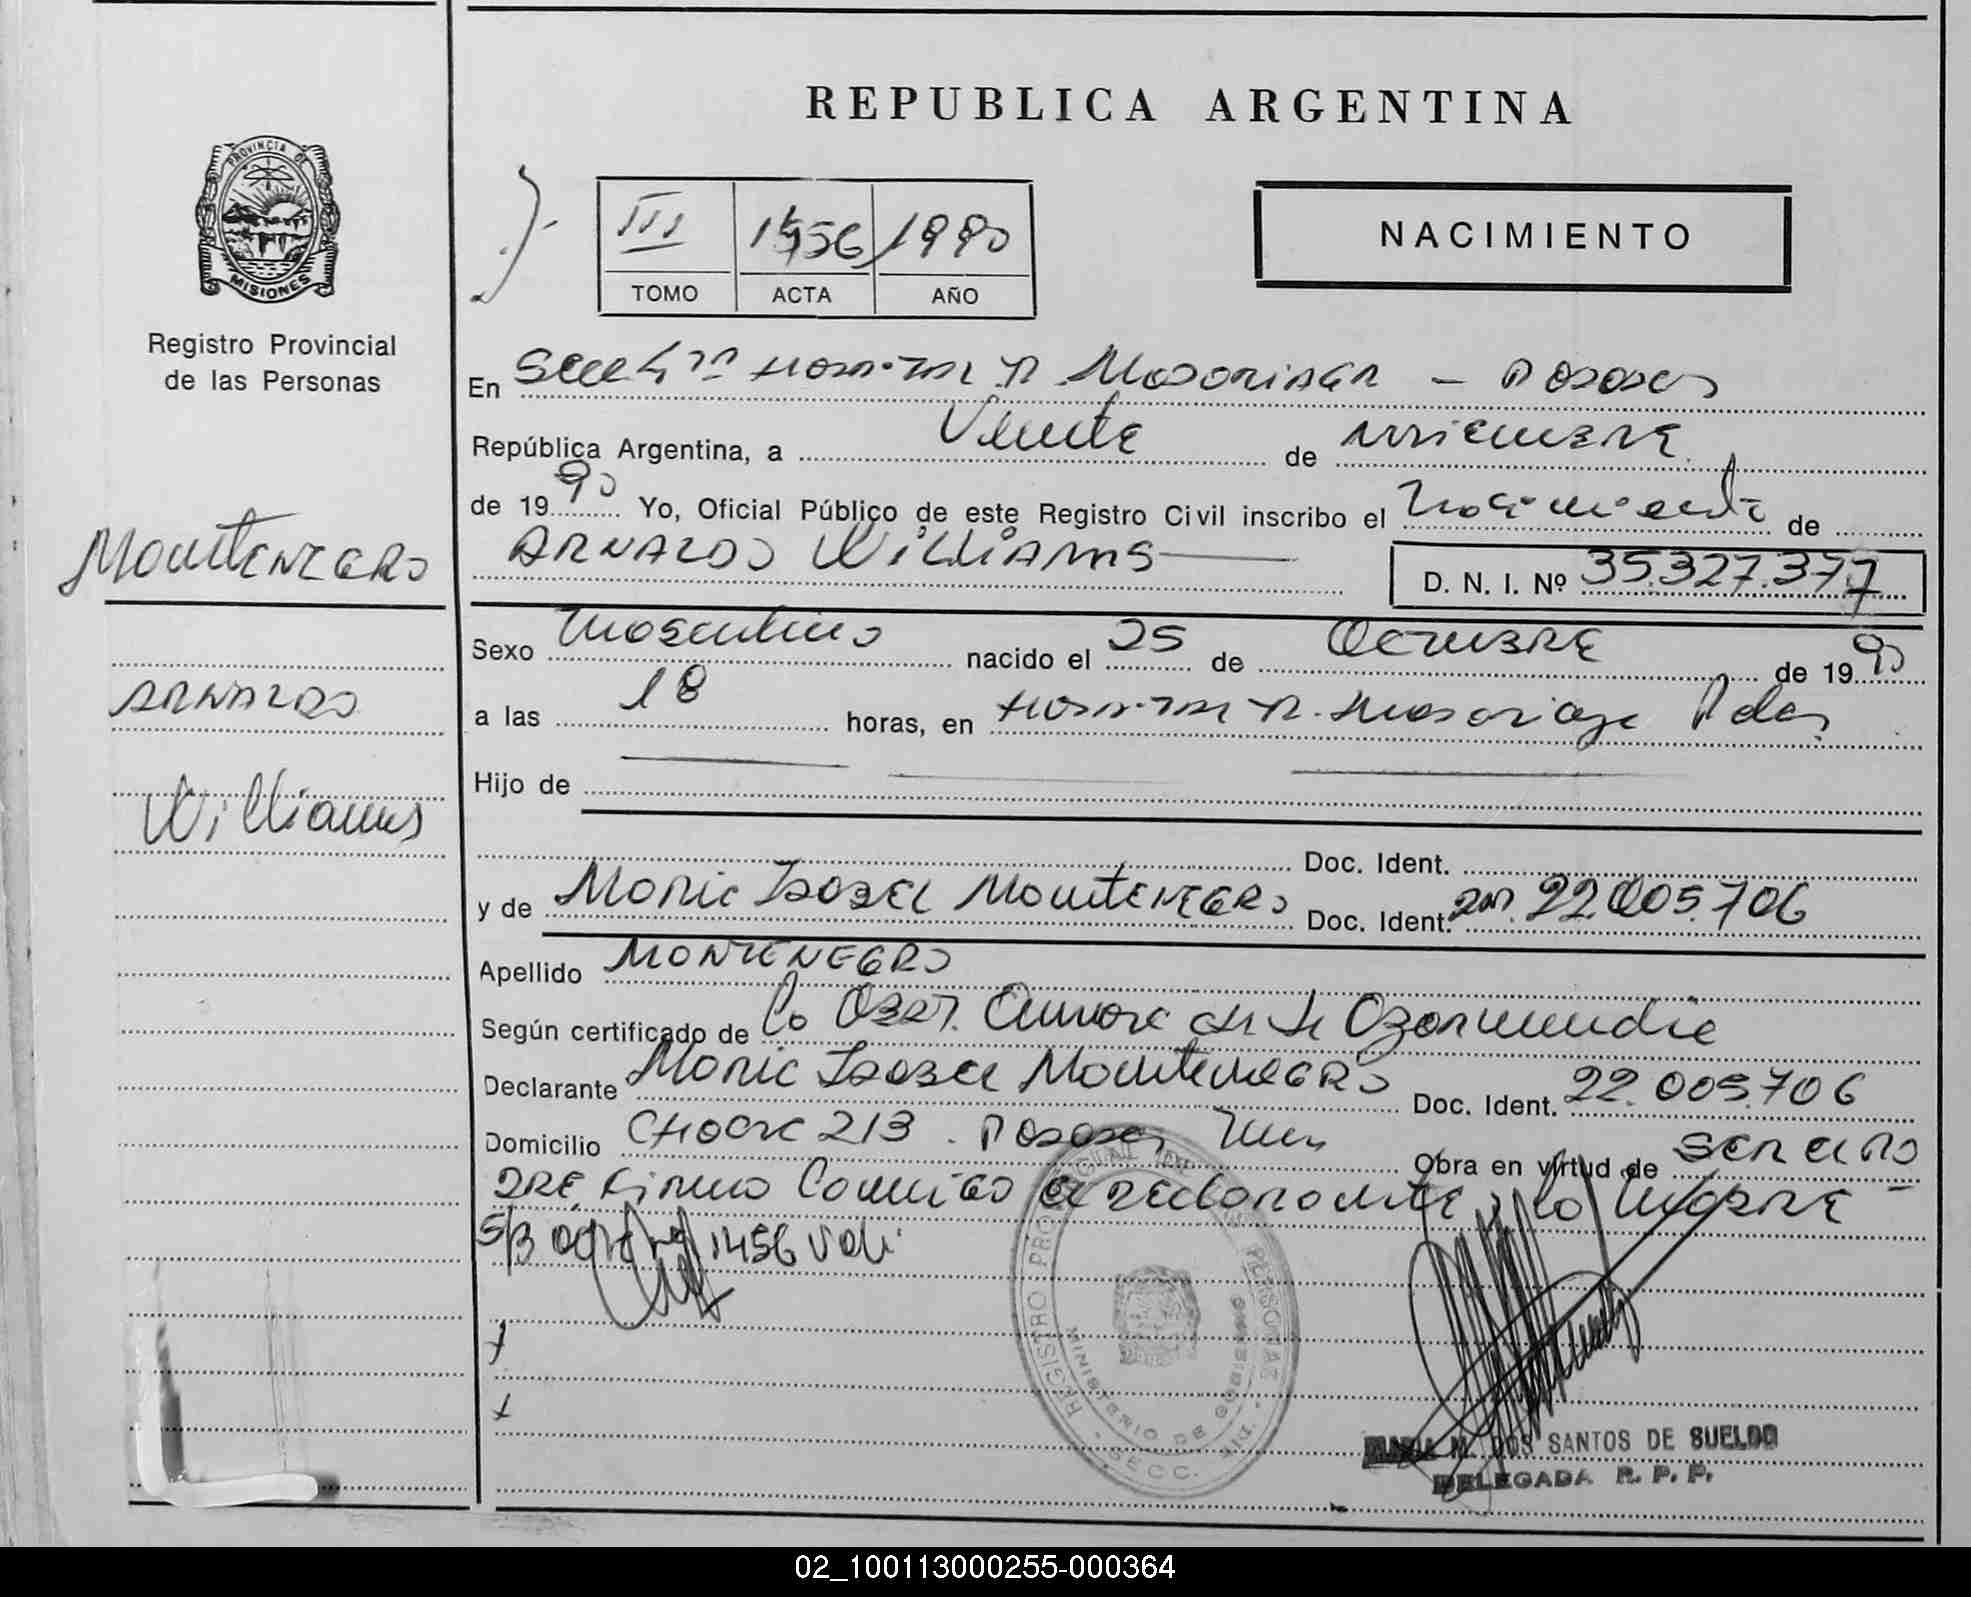 REPUBLICA ARGENTINA
PROVINCIA DE
MISIONES
Registro Provincial
de las Personas
III 1456 1990
TOMO ACTA AÑO
NACIMIENTO
En Secc 4ta Hospital R. Madariaga - Posadas
República Argentina, a Veinte de Noviembre
de 1990 Yo, Oficial Público de este Registro Civil inscribo el Nacimiento de
ARNALDO WilliAMS
D. N. I. Nº 35.327.377
MONTENEGRO
ARNALDO
Williams
Sexo Masculino nacido el 25 de OCTUBRE de 1990
a las 18 horas, en Hospital R. Madariaga Pdas
Hijo de
Doc. Ident.
y de Maria Isabel MONTENEGRO Doc. Ident. 22.005.706
Apellido MONTENEGRO
Según certificado de La Obst. Aurora de
Declarante Maria Isabel MONTENEGRO Doc. Ident. 22.005.706
Domicilio 213. Posadas Mnes Obra en virtud de SER CIRO
DRE, Firma Conmigo el declarante, la MADRE-
S/B 1456 Vale
REGISTRO PROVINCIAL DE LAS PERSONAS
MINISTERIO DE GOBIERNO
SECC.
MARIA M. DOS SANTOS DE SUELDO
DELEGADA R. P. P.
02_100113000255-000364